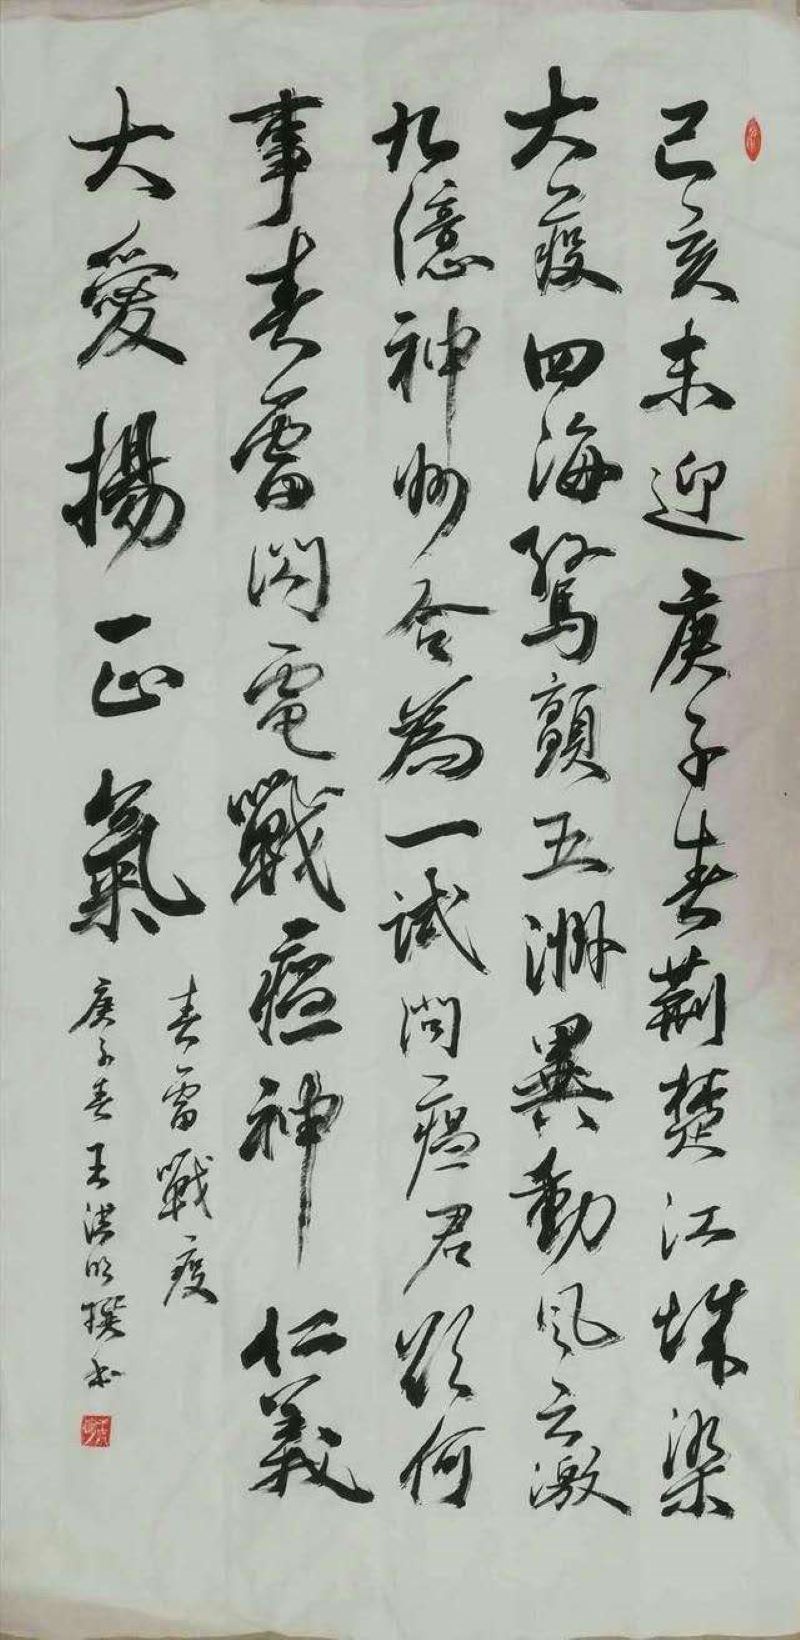 己亥末迎庚子春荆楚江城染
大疫四海驚顫五洲異動風云激
九億神州合为一試問瘟君欲何
事春雷閃電戰瘟神仁義
大愛揚正氣
春雷戰疫
庚子春王洪明撰书